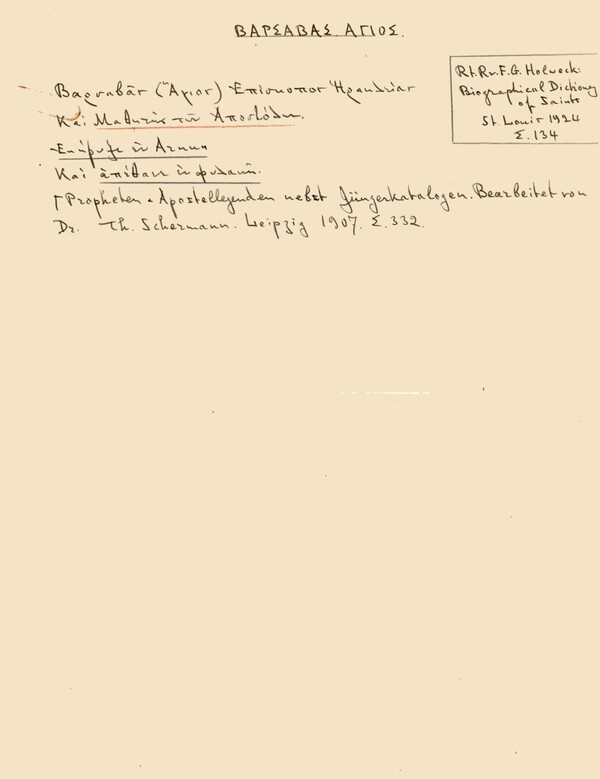 ΒΑΡΣΑΒΑΣ ΑΓΙΟΣ.
Rt. Rv. F.G. Holweck:
Biographical Dictionary
of Saints
St. Louis 1924
Σ. 134
Βαρσαβᾶς (Ἅγιος) Ἐπίσκοπος Ἡρακλείας
Καὶ Μαθητὴς τῶν Ἀποστόλων.
Ἐκήρυξε ἐν
Καὶ ἀπέθανε ἐν φυλακῇ.
Propheten u Apostellegenden nebst Jüngerkatalogen. Bearbeitet von
Dr. Th. Schermann. Leipzig 1907. Σ. 332.